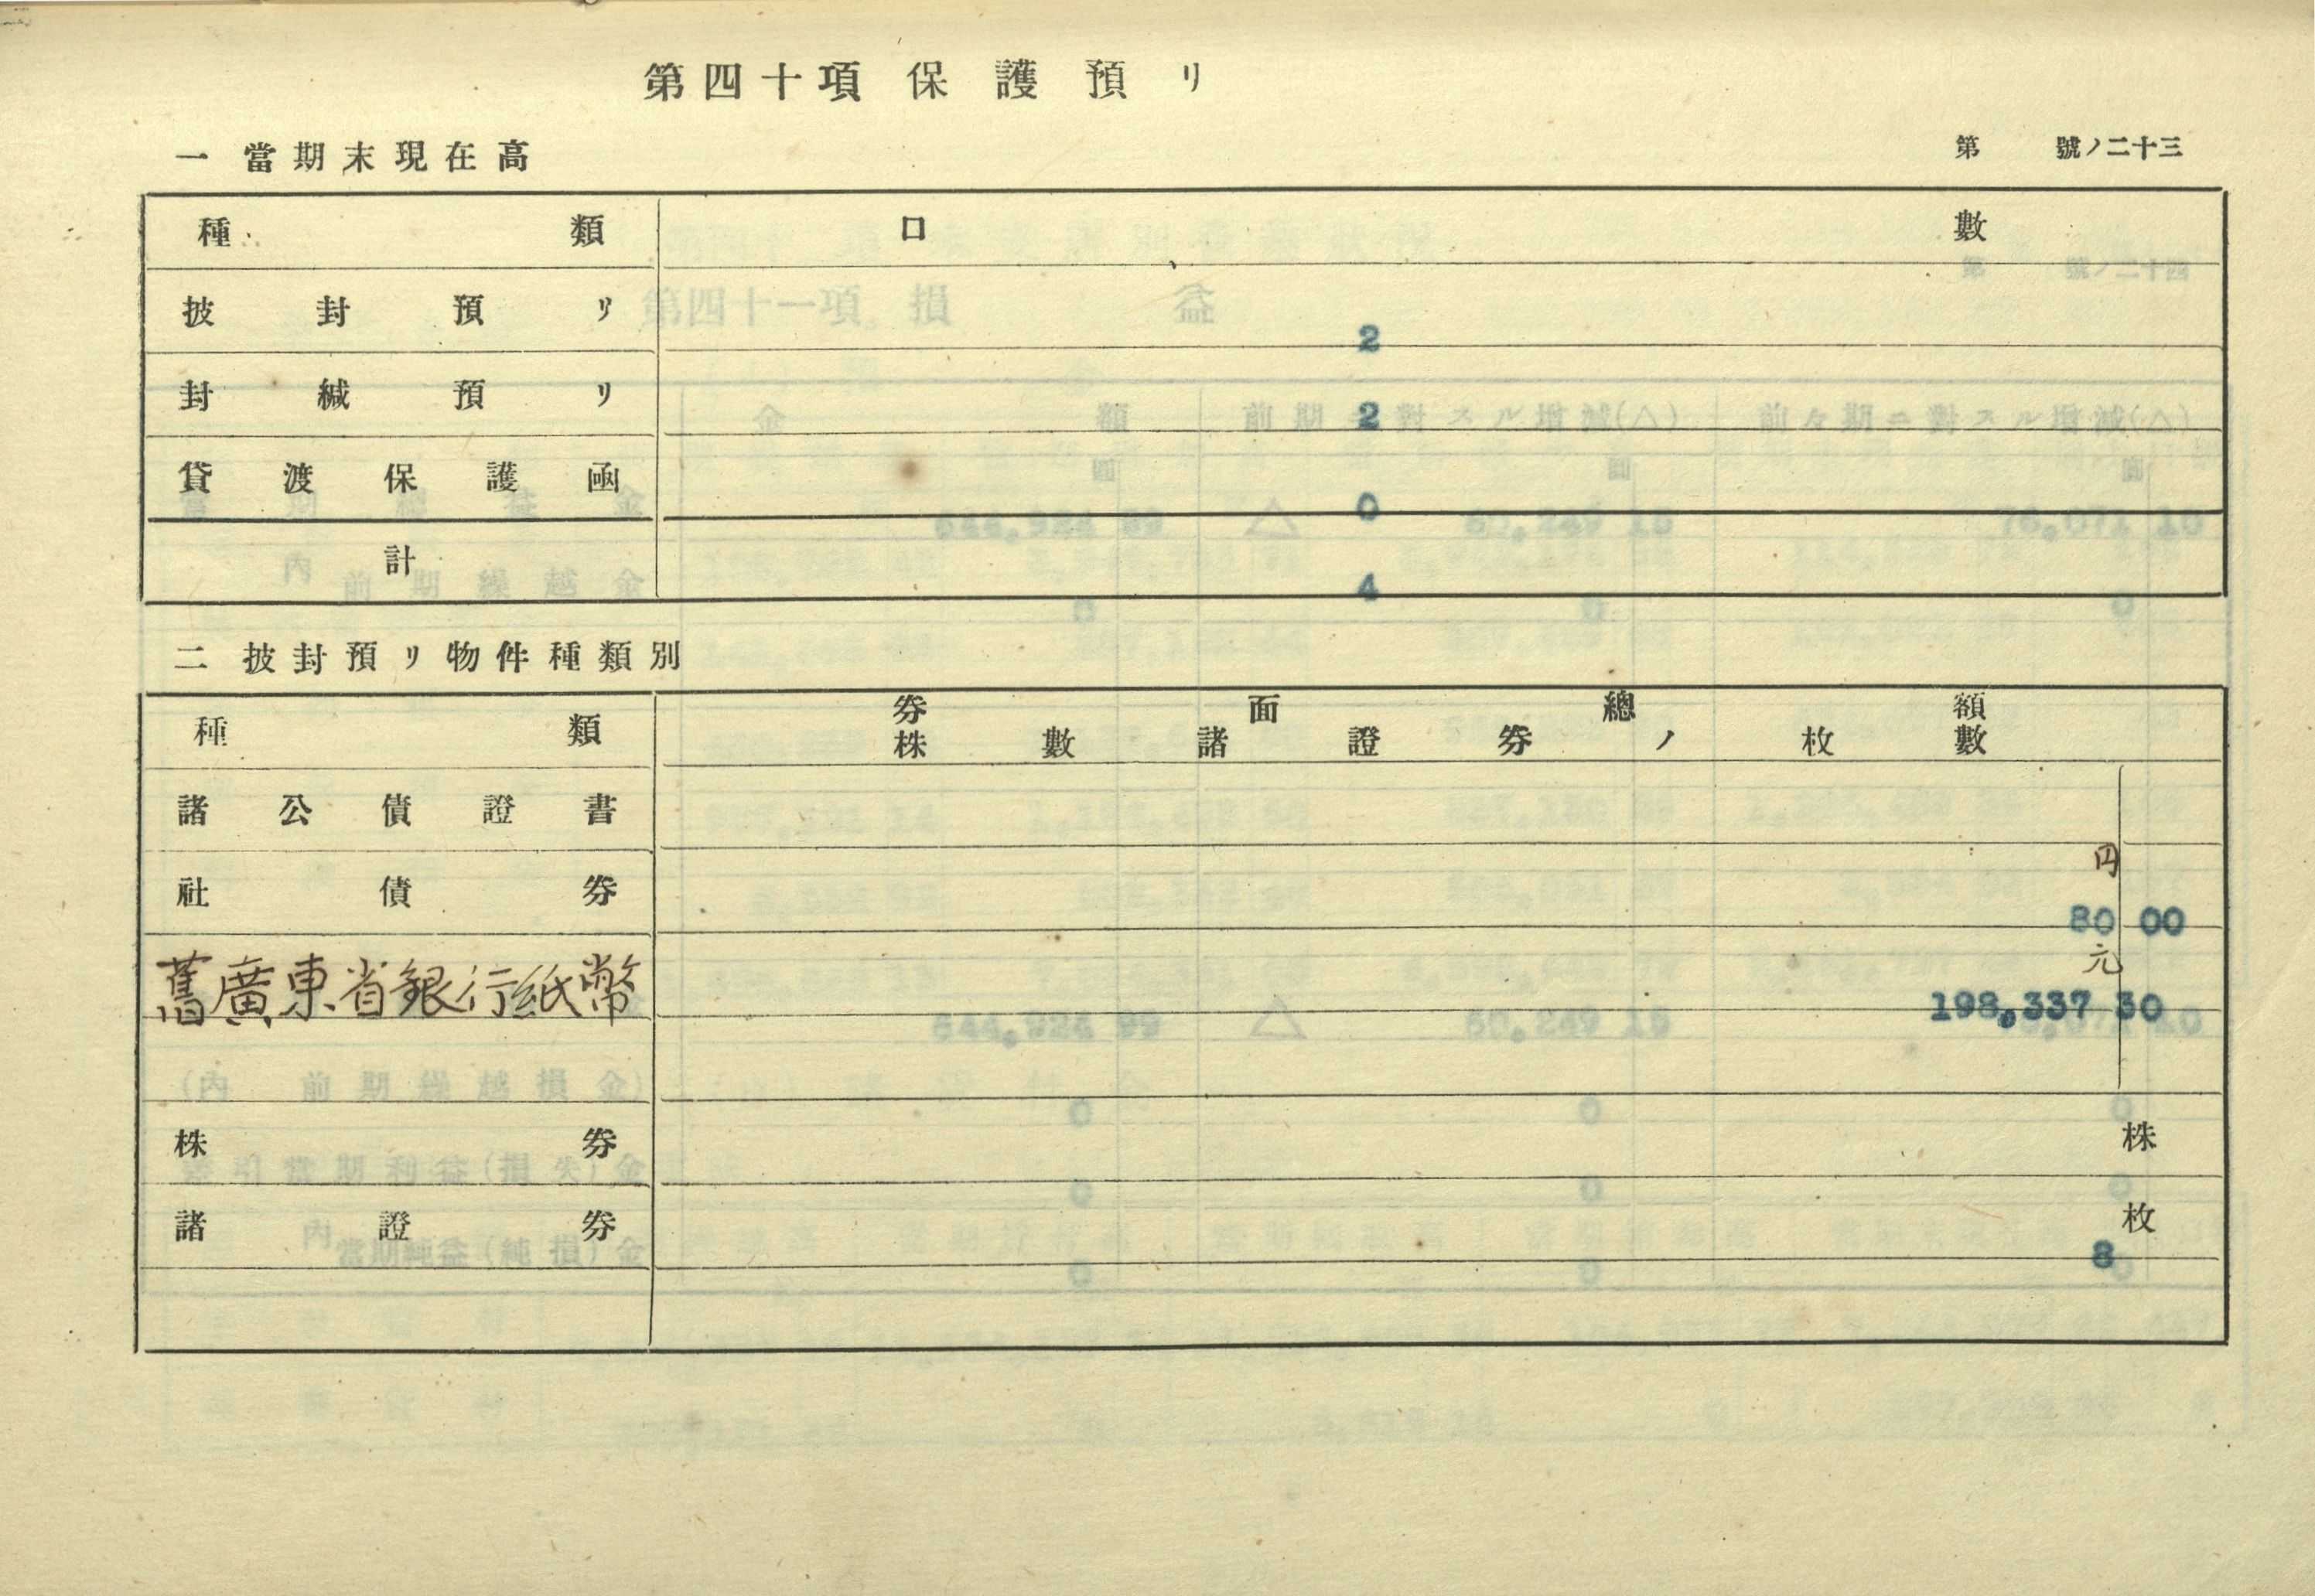 第四十項 保護預リ
一 當期末現在高
第 號ノ二十三
種類 口數
披封預リ 2
封緘預リ 2
貸渡保護函 0
計 4
二 披封預リ物件種類別
種類 券面總額
株數諸證券ノ枚數
諸公債證書
円
社債券 80 00
元
舊廣東省銀行紙幣 198,337 30
株券 株
諸證券 枚
8